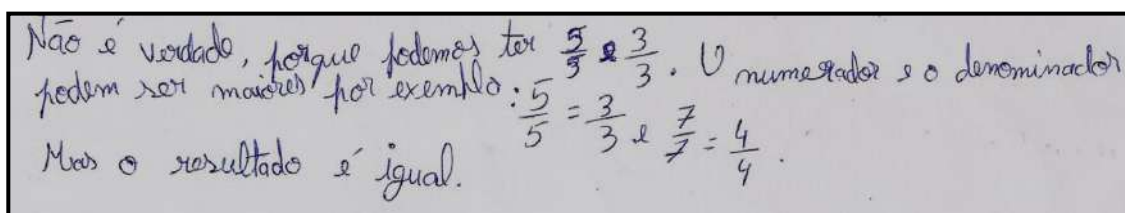 Não é verdade, porque podemos ter 5/5 e 3/3. O numerador e o denominador
podem ser maiores por exemplo: 5/5 = 3/3 e 7/7 = 4/4.
Mas o resultado é igual.